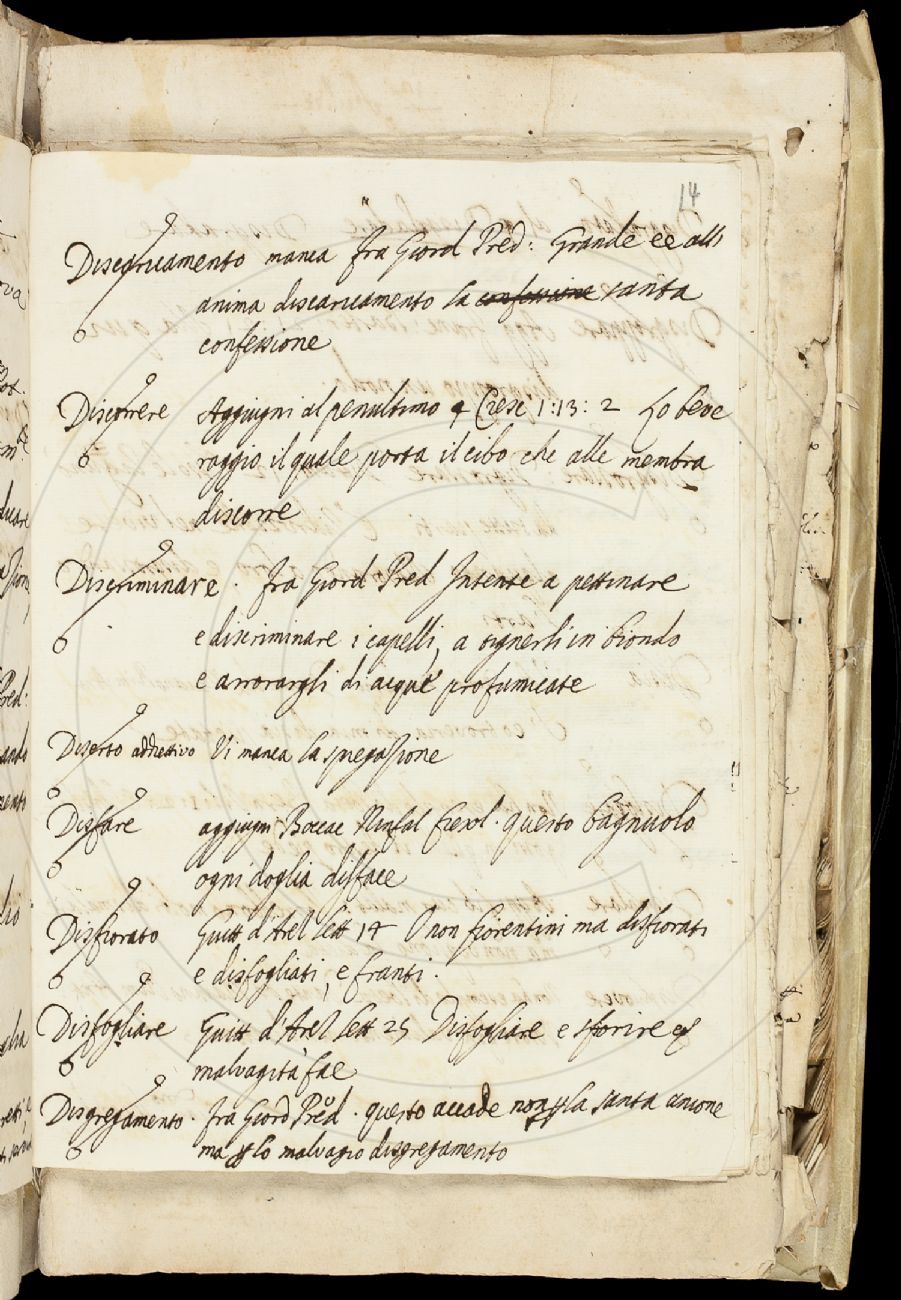 14
Discaricamento manca fra Giord Pred: Grande è e all
anima discaricamento la confessione santa
confessione
Discorrere Aggiugni al penultimo § Cresc 1:13:2 Lo beve
raggio il quale porta il cibo che alle membra
discorre
Discriminare. fra Giord Pred Intente a pettinare
e discriminare i capelli, a tignerli in biondo
e arrorargli di acque profumicate
Diserto addiettivo Vi manca la spiegazione
Disfare aggiugni Boccac Ninfal fiesol. questo bagnuolo
ogni doglia disface
Disfiorato Guitt d'Arez lett 14 O non fiorentini ma disfiorati
e disfogliati, e franti.
Disfogliare Guitt d'Arez lett 25 Disfogliare e sfiorire
malvagità fae
Disgregamento. fra Giord Pred. questo accade non p la santa unione
ma p lo malvagio disgregamento